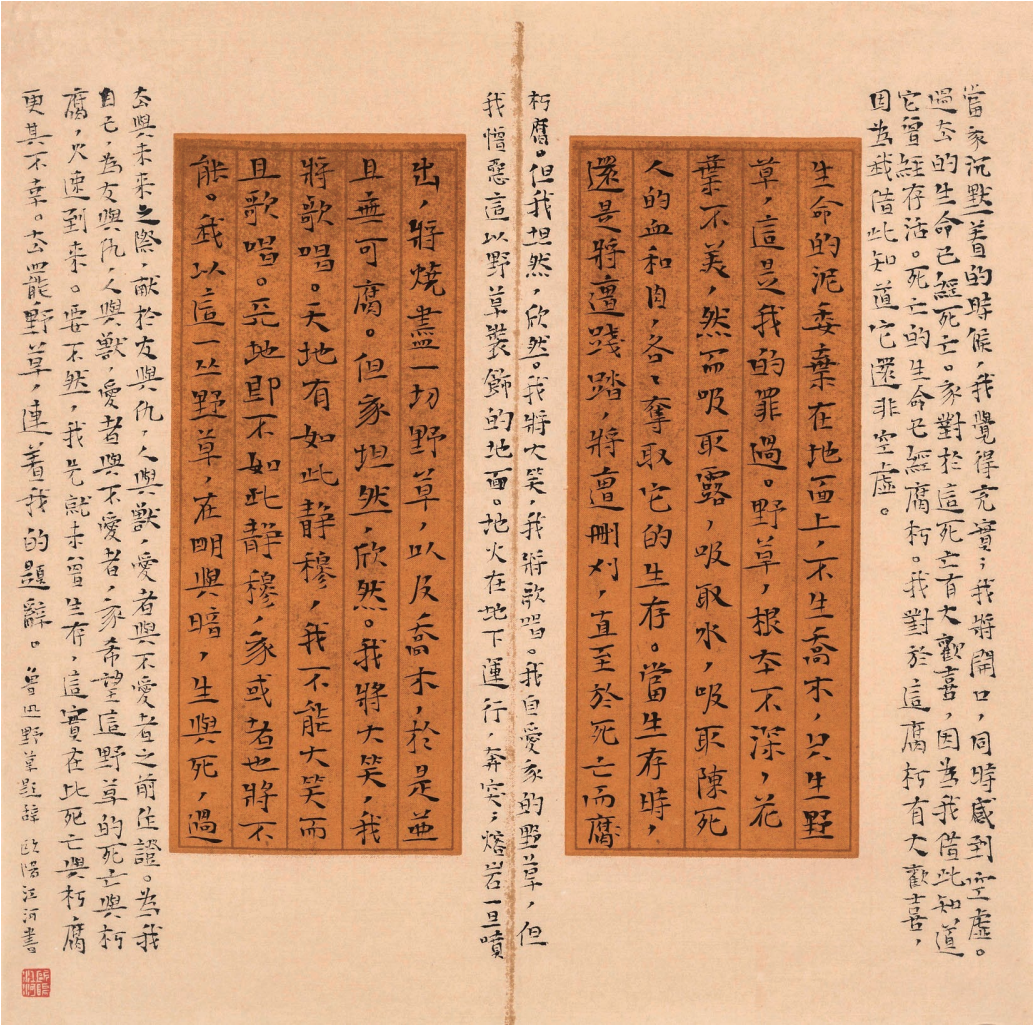 當我沉默着的時候，我覺得充實；我將開口，同時感到空虛。
過去的生命已經死亡。我對於這死亡有大歡喜，因為我借此知道
它曾經存活。死亡的生命已經腐朽。我對於這腐朽有大歡喜，
因為我借此知道它還非空虛。
生命的泥委棄在地面上，不生喬木，只生野
草，這是我的罪過。野草，根本不深，花
葉不美，然而吸取露，吸取水，吸取陳死
人的血和肉，各各奪取它的生存。當生存時，
還是將遭踐踏，將遭刪刈，直至於死亡而腐
朽腐。但我坦然，欣然。我將大笑，我將歌唱。我自愛我的野草，但
我憎惡這以野草裝飾的地面。地火在地下運行，奔突；熔岩一旦噴
出，將燒盡一切野草，以及喬木，於是並
且無可腐。但我坦然，欣然。我將大笑，我
將歌唱。天地有如此靜穆，我不能大笑而
且歌唱。天地即不如此靜穆，我或者也將不
能。我以這一叢野草，在明與暗，生與死，過
去與未來之際，獻於友與仇，人與獸，愛者與不愛者之前作證。為我
自己，為友與仇，人與獸，愛者與不愛者，我希望這野草的死亡與朽
腐，火速到來。要不然，我先就未曾生存，這實在比死亡與朽腐
更其不幸。去罷野草，連着我的題辭。魯迅野草題辭 歐陽江河書